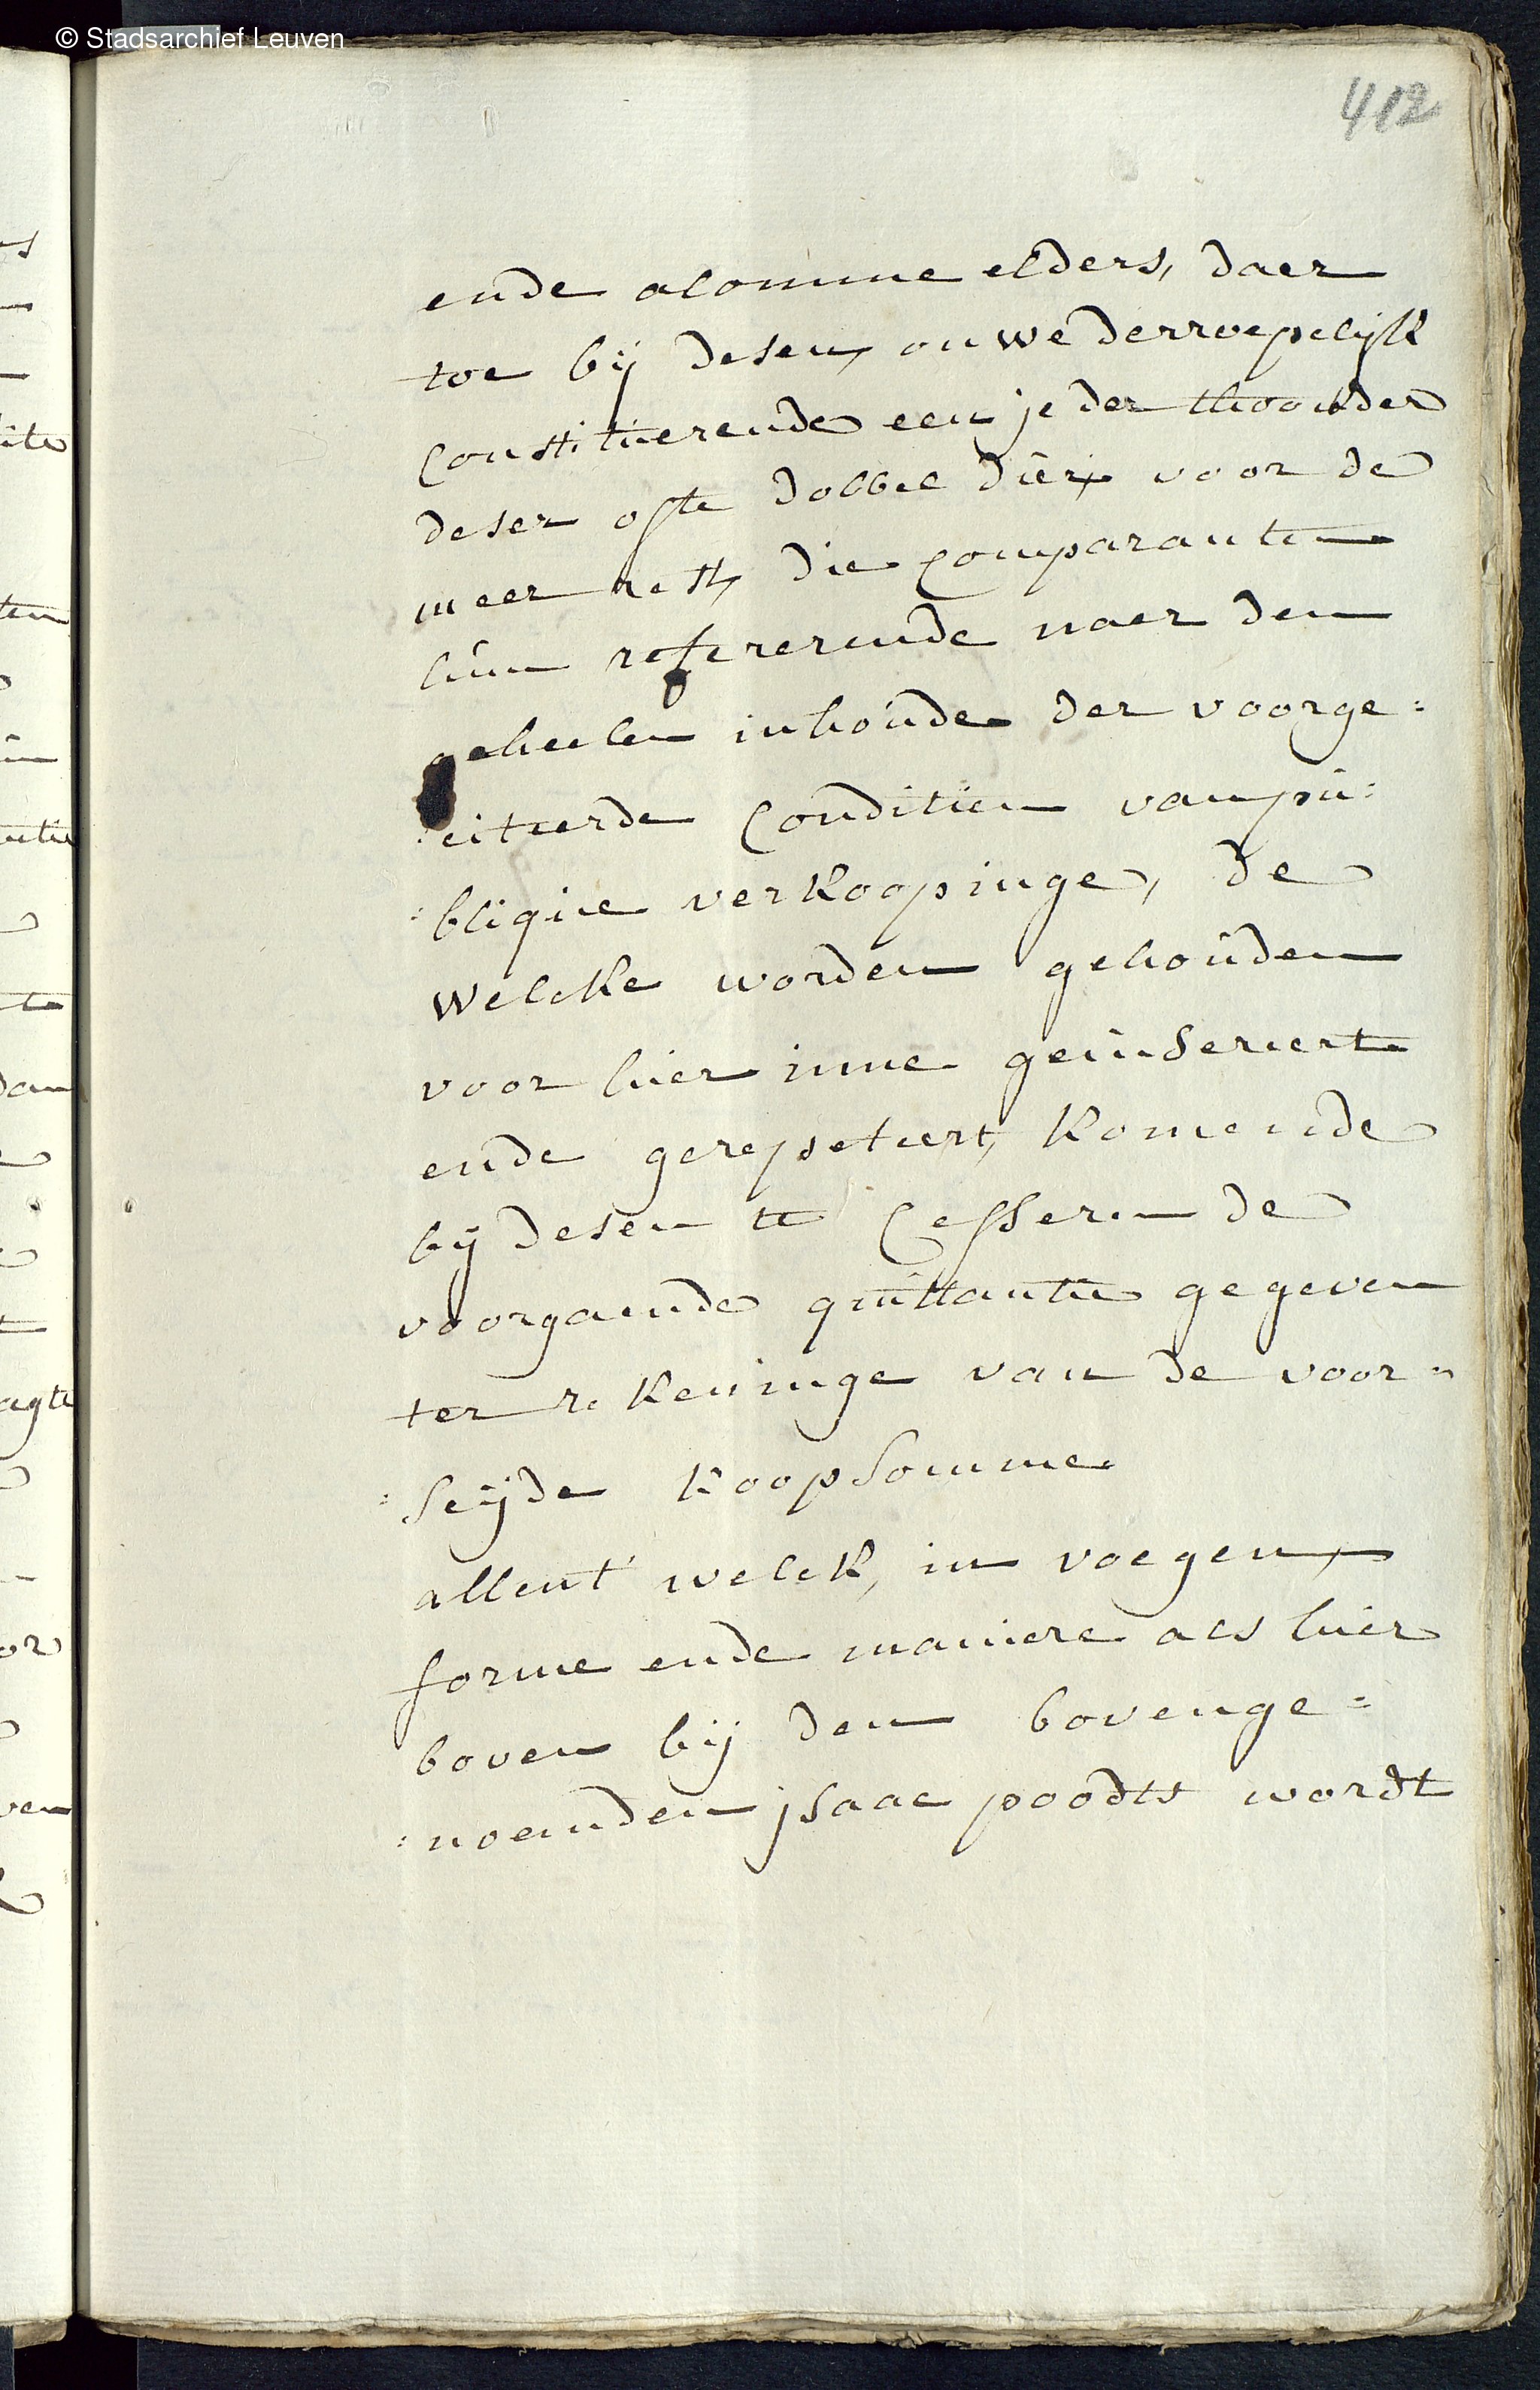 © Stadsarchief Leuven
412
ende alomme elders, daer
toe bij desen, onwederroepelijk
Constituerende een jeder thoonder
deser ofte dobbel dier, voor de
meer rest, die Comparanten
hun refererende naer den
geheelen inhoude der voorge=
:citeerde Conditien van pu:
:blique verkoopinge, de
welcke worden gehouden
voor hier inne geinsereert
ende gerepeteert, komende
bij desen te Cesseren de
voorgaende quittantie gegeven
ter rekeninge van de voor=
:seijde koopsomme
allent welck, in voegen,
forme ende maniere als hier
boven bij den bovenge=
:noemden jsaac poodts wordt